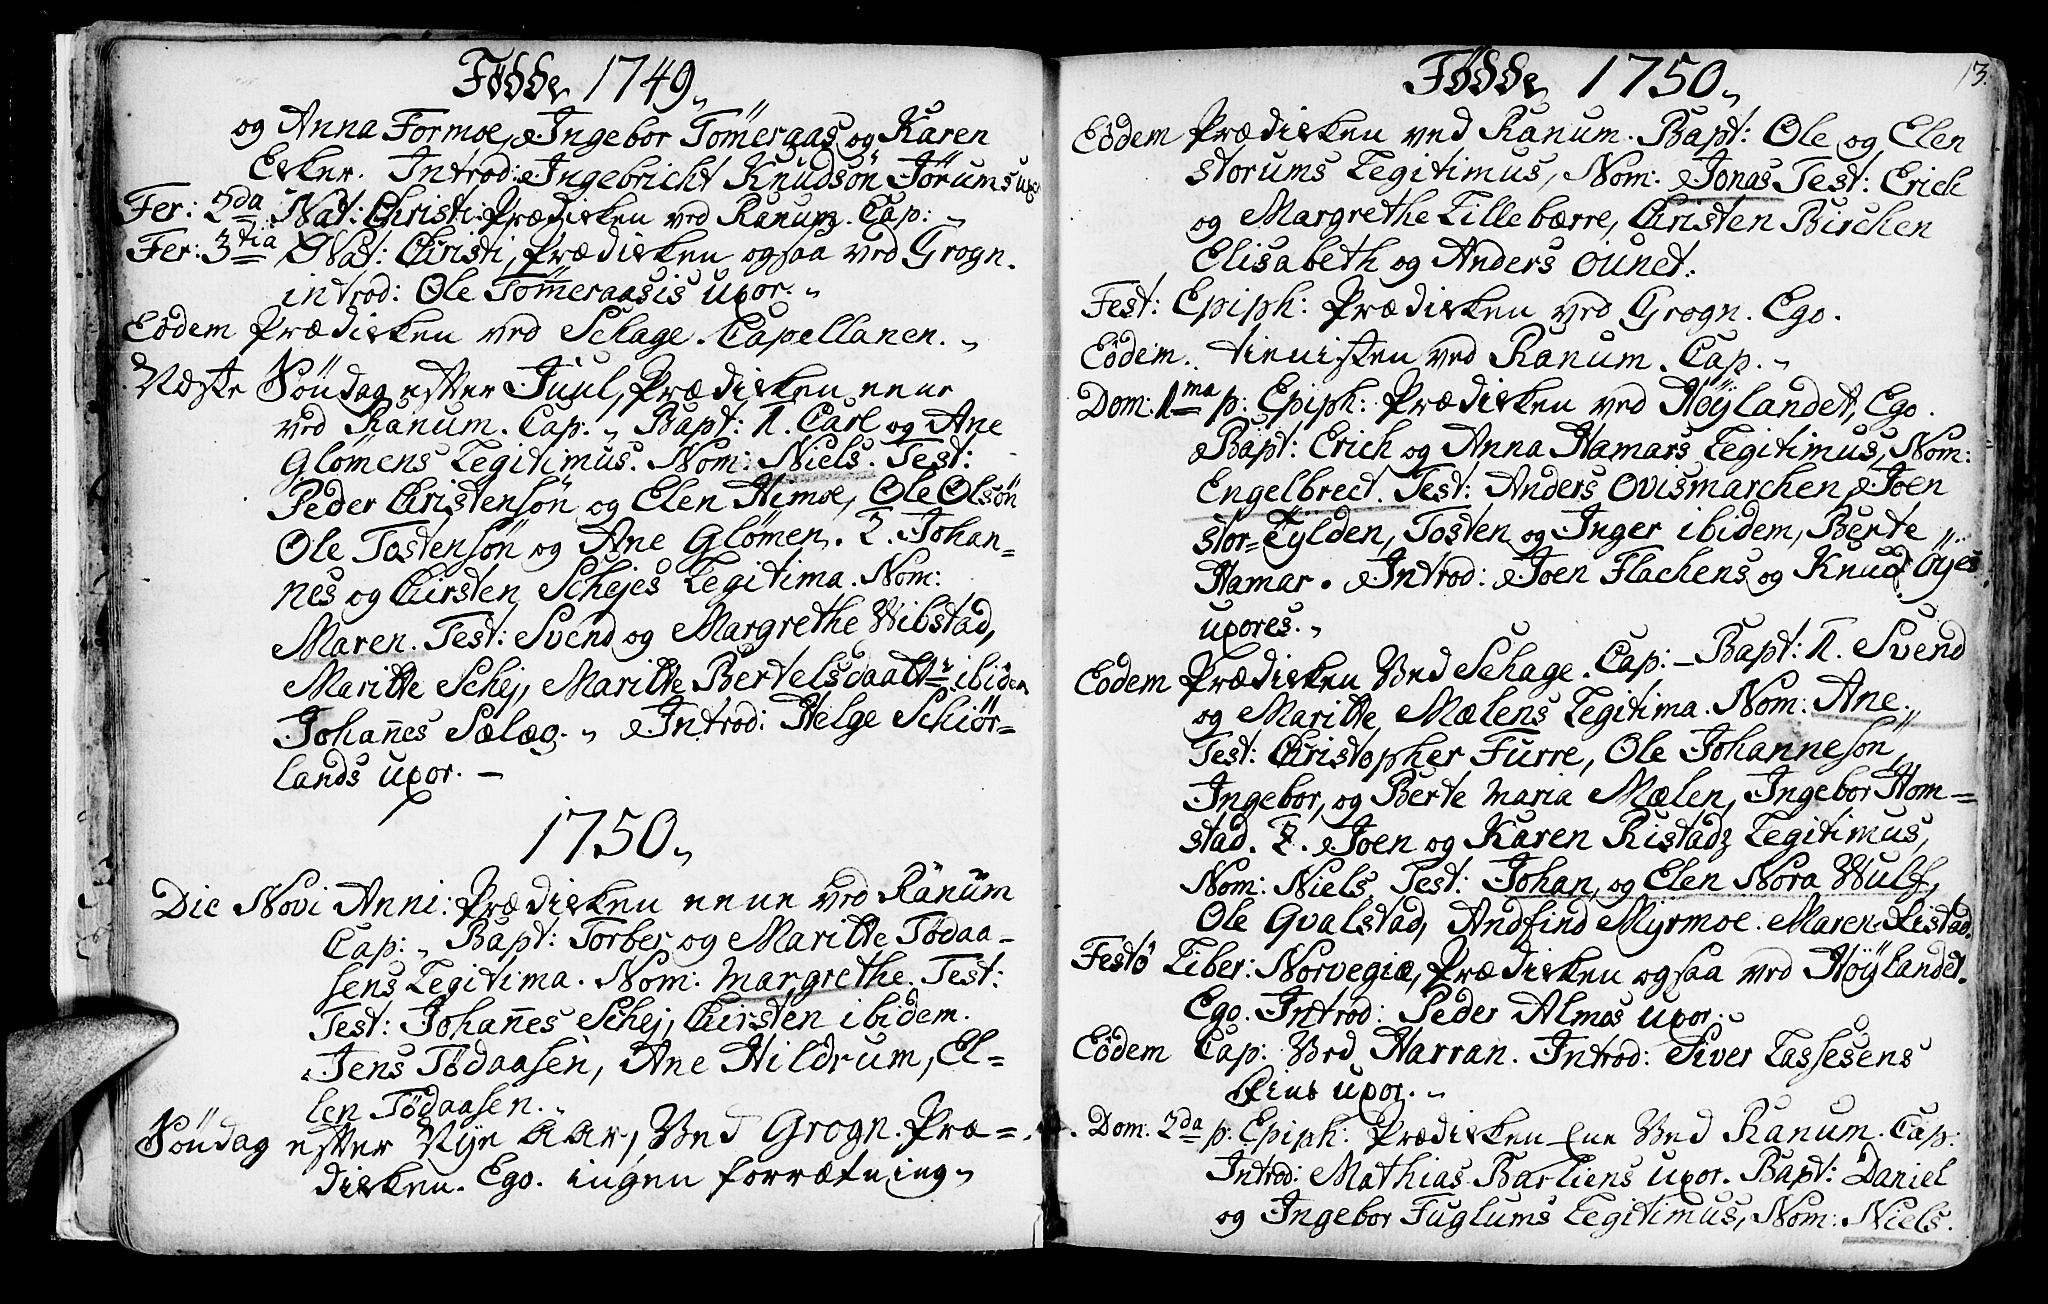 Fødde 1749.
og Anna Formoe, Ingebor Tömeraas og Karen
Esker. Introd: Ingebricht Knudsön Jörums ux:
Fer: 2da Nat: Christi Prædisken ved Ranum. Cap:
Fer: 3tia Nat: Christi, Prædisken ogsaa ved Grogn.
introd: Ole Tömeraasis uxor.
Eodem Prædisken ved Schage. Capellanen.
Næste Söndag efter Juul, Prædisken
ved Ranum. Cap: Bapt: 1. Carl og Ane
Glömens Legitimus. Nom: Niels. Test:
Peder Christensön og Elen Himoe, Ole Olsön
Ole Tostensön og Ane Glömen. 2. Johan-
nes og Chirsten Schejes Legitima. Nom:
Maren. Test: Svend og Margrethe Vibstad,
Maritte Schej, Maritte Bertelsdaatr ibidem
Johañes Sælæg. Introd: Helge Schiör-
lands uxor. —
1750.
Die Novi Anni: Prædisken ved Ranum
Cap: Bapt: Torber og Maritte Tödaa-
sens Legitima. Nom: Margrethe. Test:
Test: Johañes Schej, Chirsten ibidem.
Jens Tödaasen, Ane Hildrum, El-
len Tödaasen.
Söndag efter Nye Aar, Ved Grogn. Præ-
disken. Ego. ingen forrætning
Födde 1750.
13.
Eodem Prædisken ved Ranum. Bapt: Ole og Elen
Storums Legitimus, Nom: Jonas Test: Erich
og Margrethe Lillebærre, Christen Birchen
Elisabeth og Anders Ounet.
Fest: Epiph: Prædisken ved Grogn. Ego.
Eodem. tienisten ved Ranum. Cap.
Dom: 1ma p: Epiph: Prædisken ved Höylandet, Ego.
Bapt: Erich og Anna Hamars Legitimus, Nom:
Engelbrect. Test: Anders Ovismarchen, Joen
Stor-Tylden, Tosten og Inger ibidem, Berte
Hamar. Introd: Joen Flachens og Knud Öyes
uxores.
Eodem Prædisken Ved Schage. Cap: — Bapt: 1. Svend
og Maritte Mælens Legitima. Nom: Ane.
Test: Christopher Furre, Ole Johannesön,
Ingebor, og Berte Maria Mælen, Ingebor Hom-
stad. 2. Joen og Karen Ristadz Legitimus,
Nom: Niels Test: Johan, og Elen Nora Wulf,
Ole Gvalstad, Andfind Myrmoe. Maren Ristad.
Festo Liber: Norvegiæ, Prædisken ogsaa ved Höylandet.
Ego. Introd: Peder Almaas uxor.
Eodem Cap: Ved Harran. Introd: Siver Lassesens
uxor.
Dom. 2da p: Epiph: Prædisken Ved Ranum. Cap:
Introd: Mathias Barliens uxor. Bapt: Daniel
og Ingebor Fuglums Legitimus, Nom: Niels.